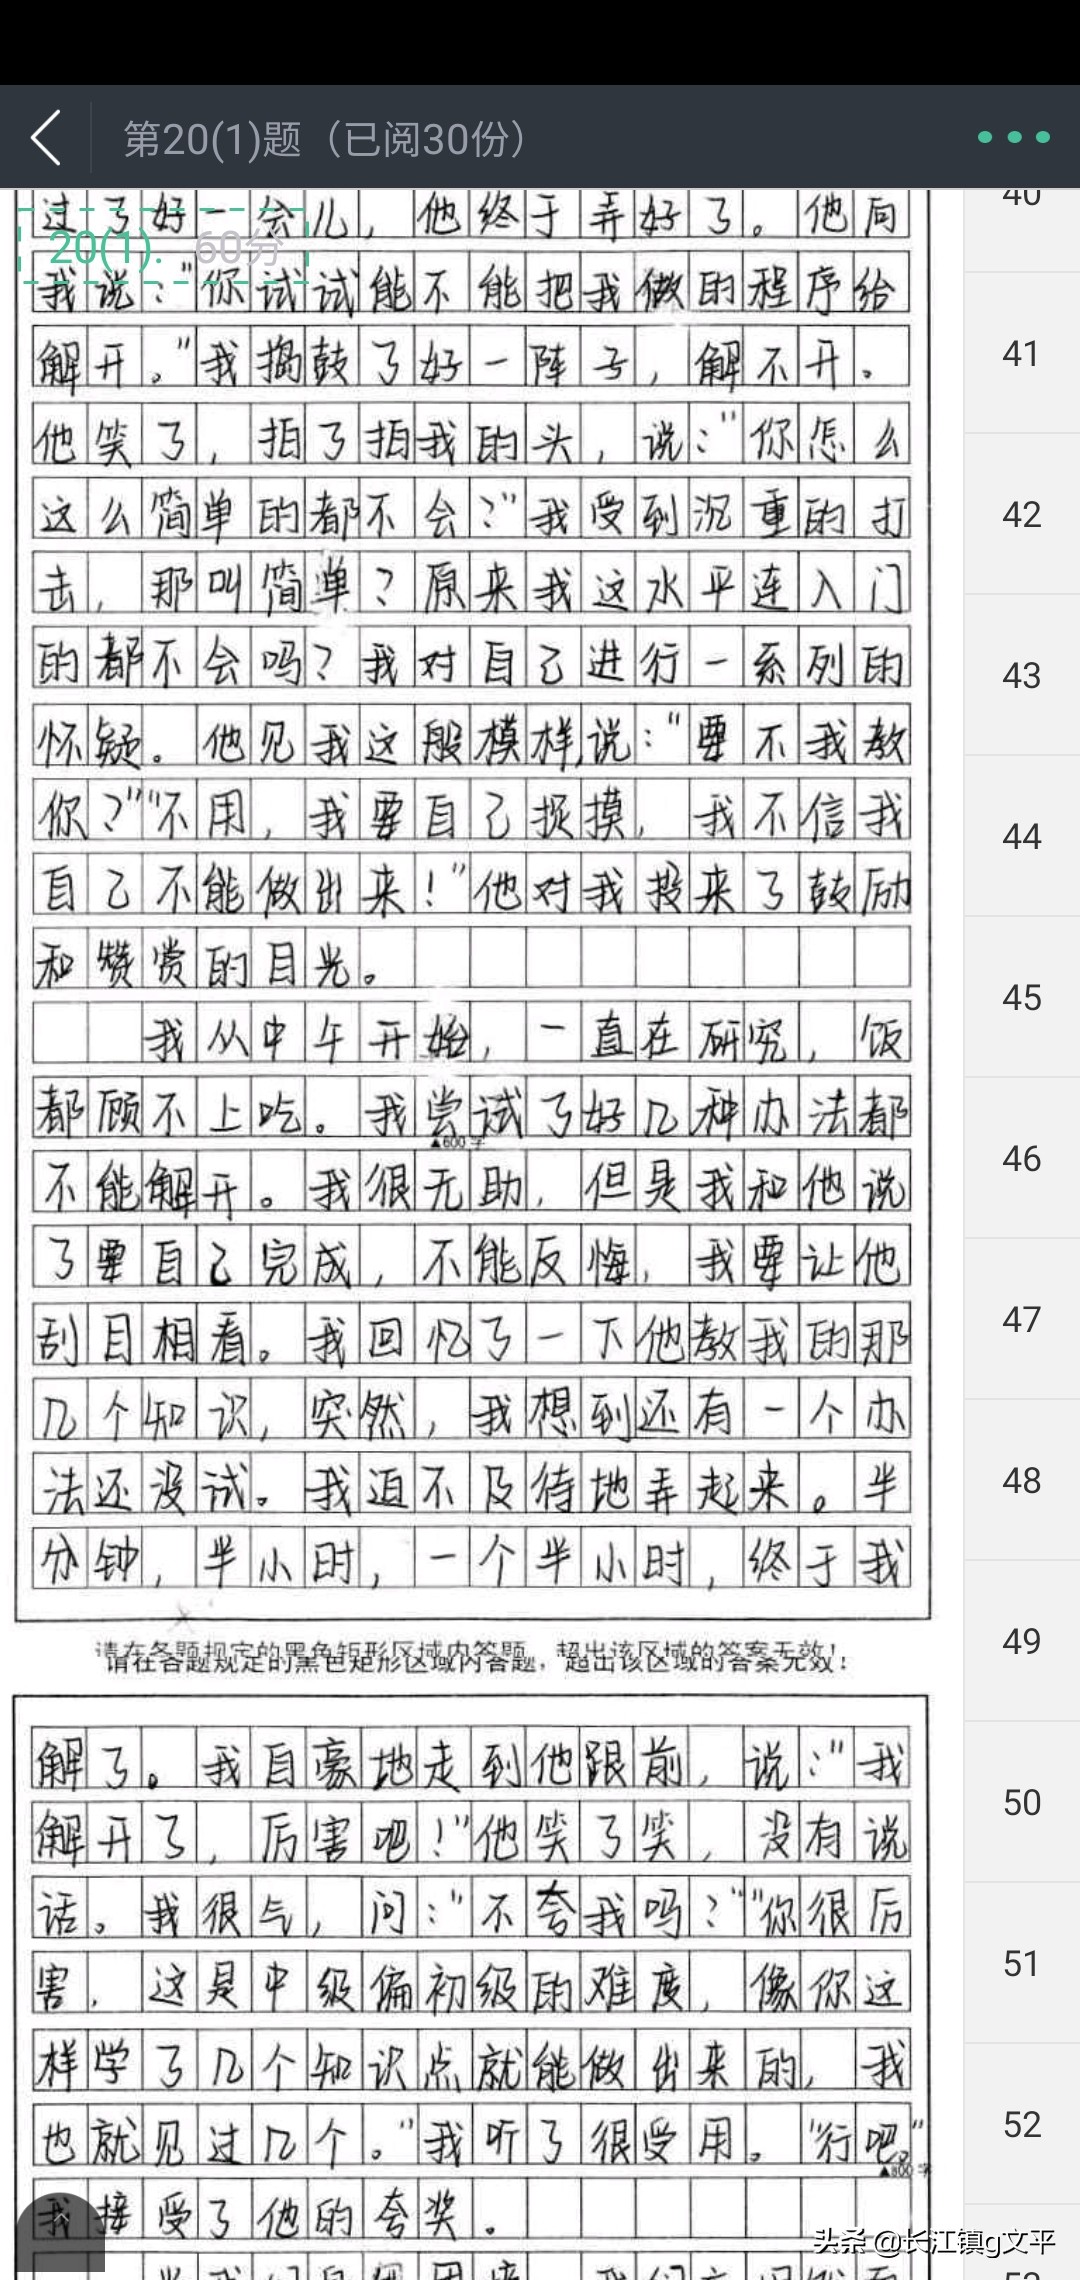 第20(1)题（已阅30份）
过了好一会儿，他终于弄好了。他向
20(1). 60分
我说："你试试能不能把我做的程序给
解开。"我捣鼓了好一阵子，解不开。
他笑了，拍了拍我的头，说："你怎么
这么简单的都不会？"我受到沉重的打
击，那叫简单？原来我这水平连入门
的都不会吗？我对自己进行一系列的
怀疑。他见我这般模样,说："要不我教
你？""不用，我要自己捉摸，我不信我
自己不能做出来！"他对我投来了鼓励
和赞赏的目光。
我从中午开始，一直在研究，饭
都顾不上吃。我尝试了好几种办法都
▲600字
不能解开。我很无助，但是我和他说
了要自己完成，不能反悔，我要让他
刮目相看。我回忆了一下他教我的那
几个知识，突然，我想到还有一个办
法还没试。我迫不及待地弄起来。半
分钟，半小时，一个半小时，终于我
请在各题规定的黑色矩形区域内答题，超出该区域的答案无效！
请在各题规定的黑色矩形区域内答题，超出该区域的答案无效！
解了。我自豪地走到他跟前，说："我
解开了，厉害吧！"他笑了笑，没有说
话。我很气，问："不夸我吗？""你很厉
害，这是中级偏初级的难度，像你这
样学了几个知识点就能做出来的，我
也就见过几个。"我听了很受用。"行吧。"
▲800字
我接受了他的夸奖。
40
41
42
43
44
45
46
47
48
49
50
51
52
头条 @长江镇g文平